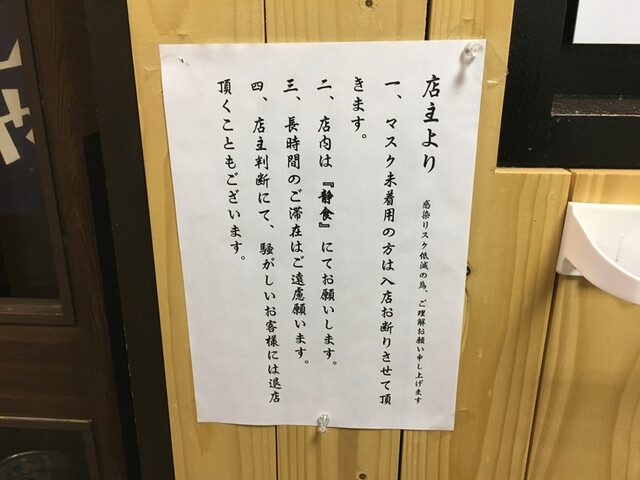 店主より
感染リスク低減の為、ご理解お願い申し上げます
一、マスク未着用の方は入店お断りさせて頂
きます。
二、店内は『静食』にてお願いします。
三、長時間のご滞在はご遠慮願います。
四、店主判断にて、騒がしいお客様には退店
頂くこともございます。